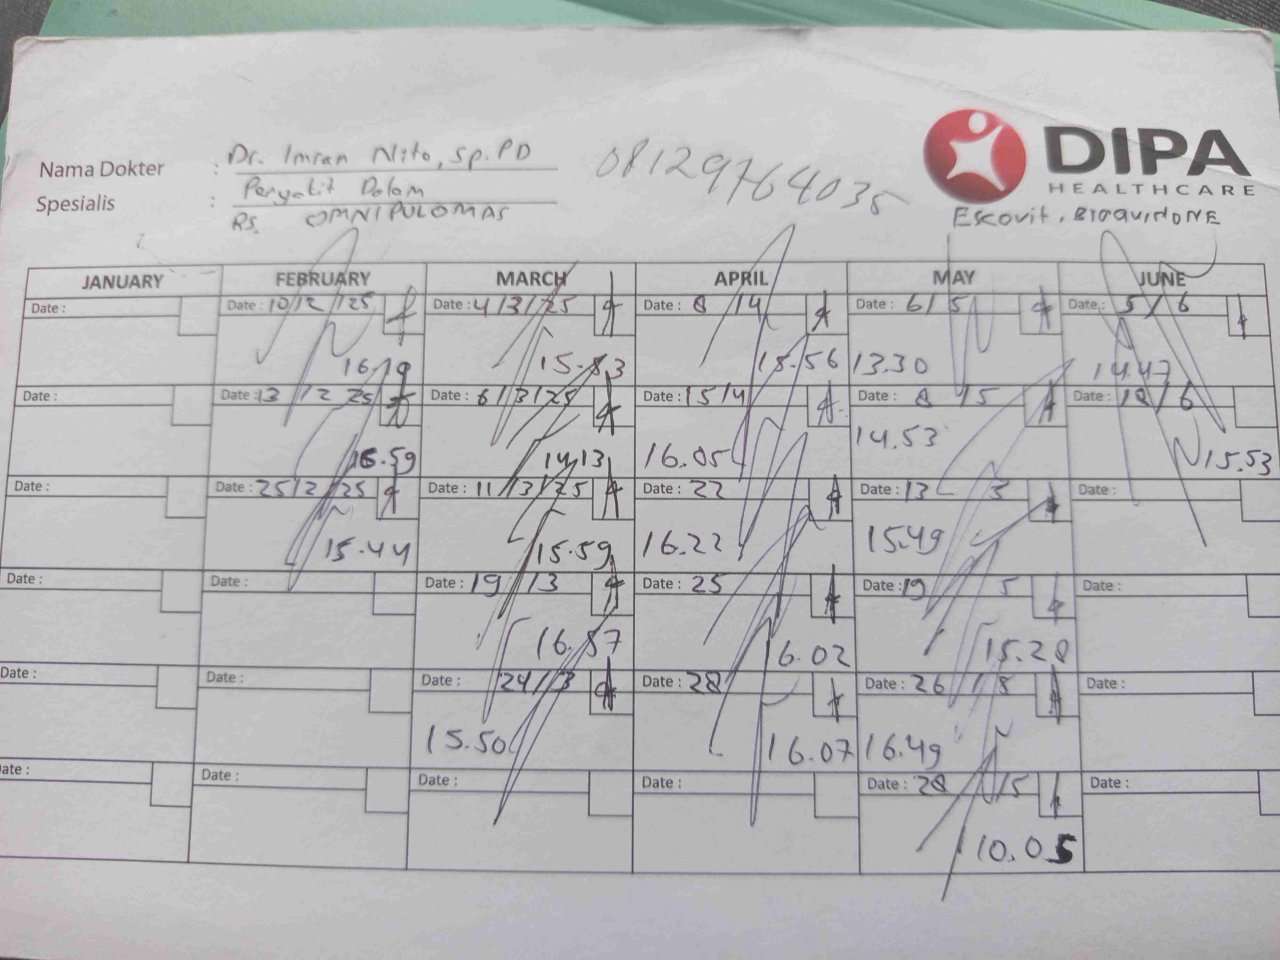 Nama Dokter : Dr. Imran Nito, Sp.PD
08129764035
DIPA
HEALTHCARE
Spesialis : Penyakit Dalam
RS. OMNIPULOMAS
Escovit, BIOQUINONE
JANUARY FEBRUARY MARCH APRIL MAY JUNE
Date : Date : 10/2/25 Date : 4/3/25 Date : 8/4 Date : 6/5 Date : 5/6
16.19 15.53 15.56 13.30 14.47
Date : Date : 13/2/25 Date : 6/3/25 Date : 15/4 Date : 8/5 Date : 18/6
16.59 14.13 16.05 14.53 15.53
Date : Date : 25/2/25 Date : 11/3/25 Date : 22 Date : 13 5 Date :
15.44 15.59 16.22 15.49
Date : Date : Date : 19/3 Date : 25 Date : 19 5 Date :
16.57 16.02 15.28
Date : Date : Date : 24/3 Date : 28 Date : 26/5 Date :
15.50 16.07 16.49
Date : Date : Date : Date : Date : 28/5 Date :
10.05